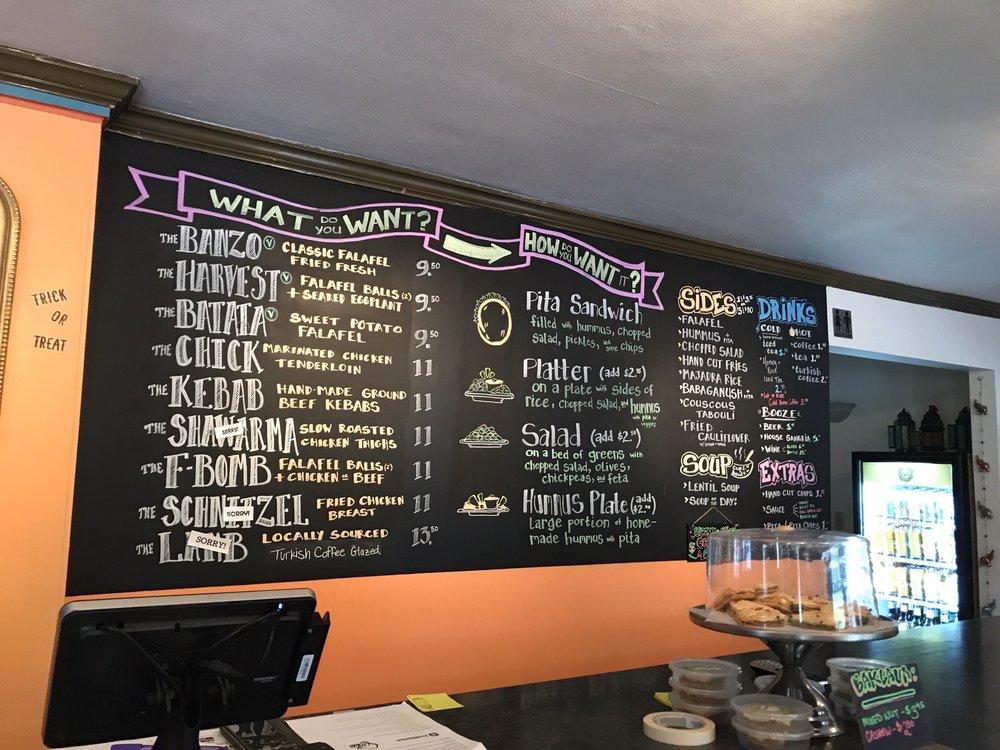 TRICK
OR
TREAT
WHAT DO YOU WANT?
THE BANZO V CLASSIC FALAFEL
FRIED FRESH 9.50
THE HARVEST V FALAFEL BALLS (2)
+ SEARED EGGPLANT 9.50
THE BATATA V SWEET POTATO
FALAFEL 9.50
THE CHICK MARINATED CHICKEN
TENDERLOIN 11
THE KEBAB HAND-MADE GROUND
BEEF KEBABS 11
THE SHAWARMA SLOW ROASTED
CHICKEN THIGHS 11
SORRY!
THE F-BOMB FALAFEL BALLS (2)
+ CHICKEN OR BEEF 11
THE SCHNITZEL FRIED CHICKEN
BREAST 11
SORRY!
THE LAMB LOCALLY SOURCED
Turkish Coffee Glazed 13.50
SORRY!
HOW DO YOU WANT IT?
Pita Sandwich
filled with hummus, chopped
salad, pickles, and some chips
Platter (add $2.50)
on a plate with sides of
rice, chopped salad, and hummus
with pita or
veggies
Salad (add $2.50)
on a bed of greens with
chopped salad, olives,
chickpeas, and feta
Hummus Plate (add
$2.50)
Large portion of home-
made hummus with pita
SIDES
FALAFEL
HUMMUS + PITA
CHOPPED SALAD
HAND CUT FRIES
MAJADRA RICE
BABAGANUSH + PITA
COUSCOUS
TABOULI
FRIED
CAULIFLOWER
SOUP
LENTIL SOUP
SOUP OF THE DAY!
DRINKS
COLD HOT
Iced
tea
coffee
tea
turkish
coffee
Cold Brew Coffee
BOOZE
BEER
HOUSE SANGRIA
WINE
EXTRAS
HAND CUT CHIPS
SAUCE
PITA / PITA CHIPS
BAKLAVA:
MIXED NUT - $3.95
CASHEW -